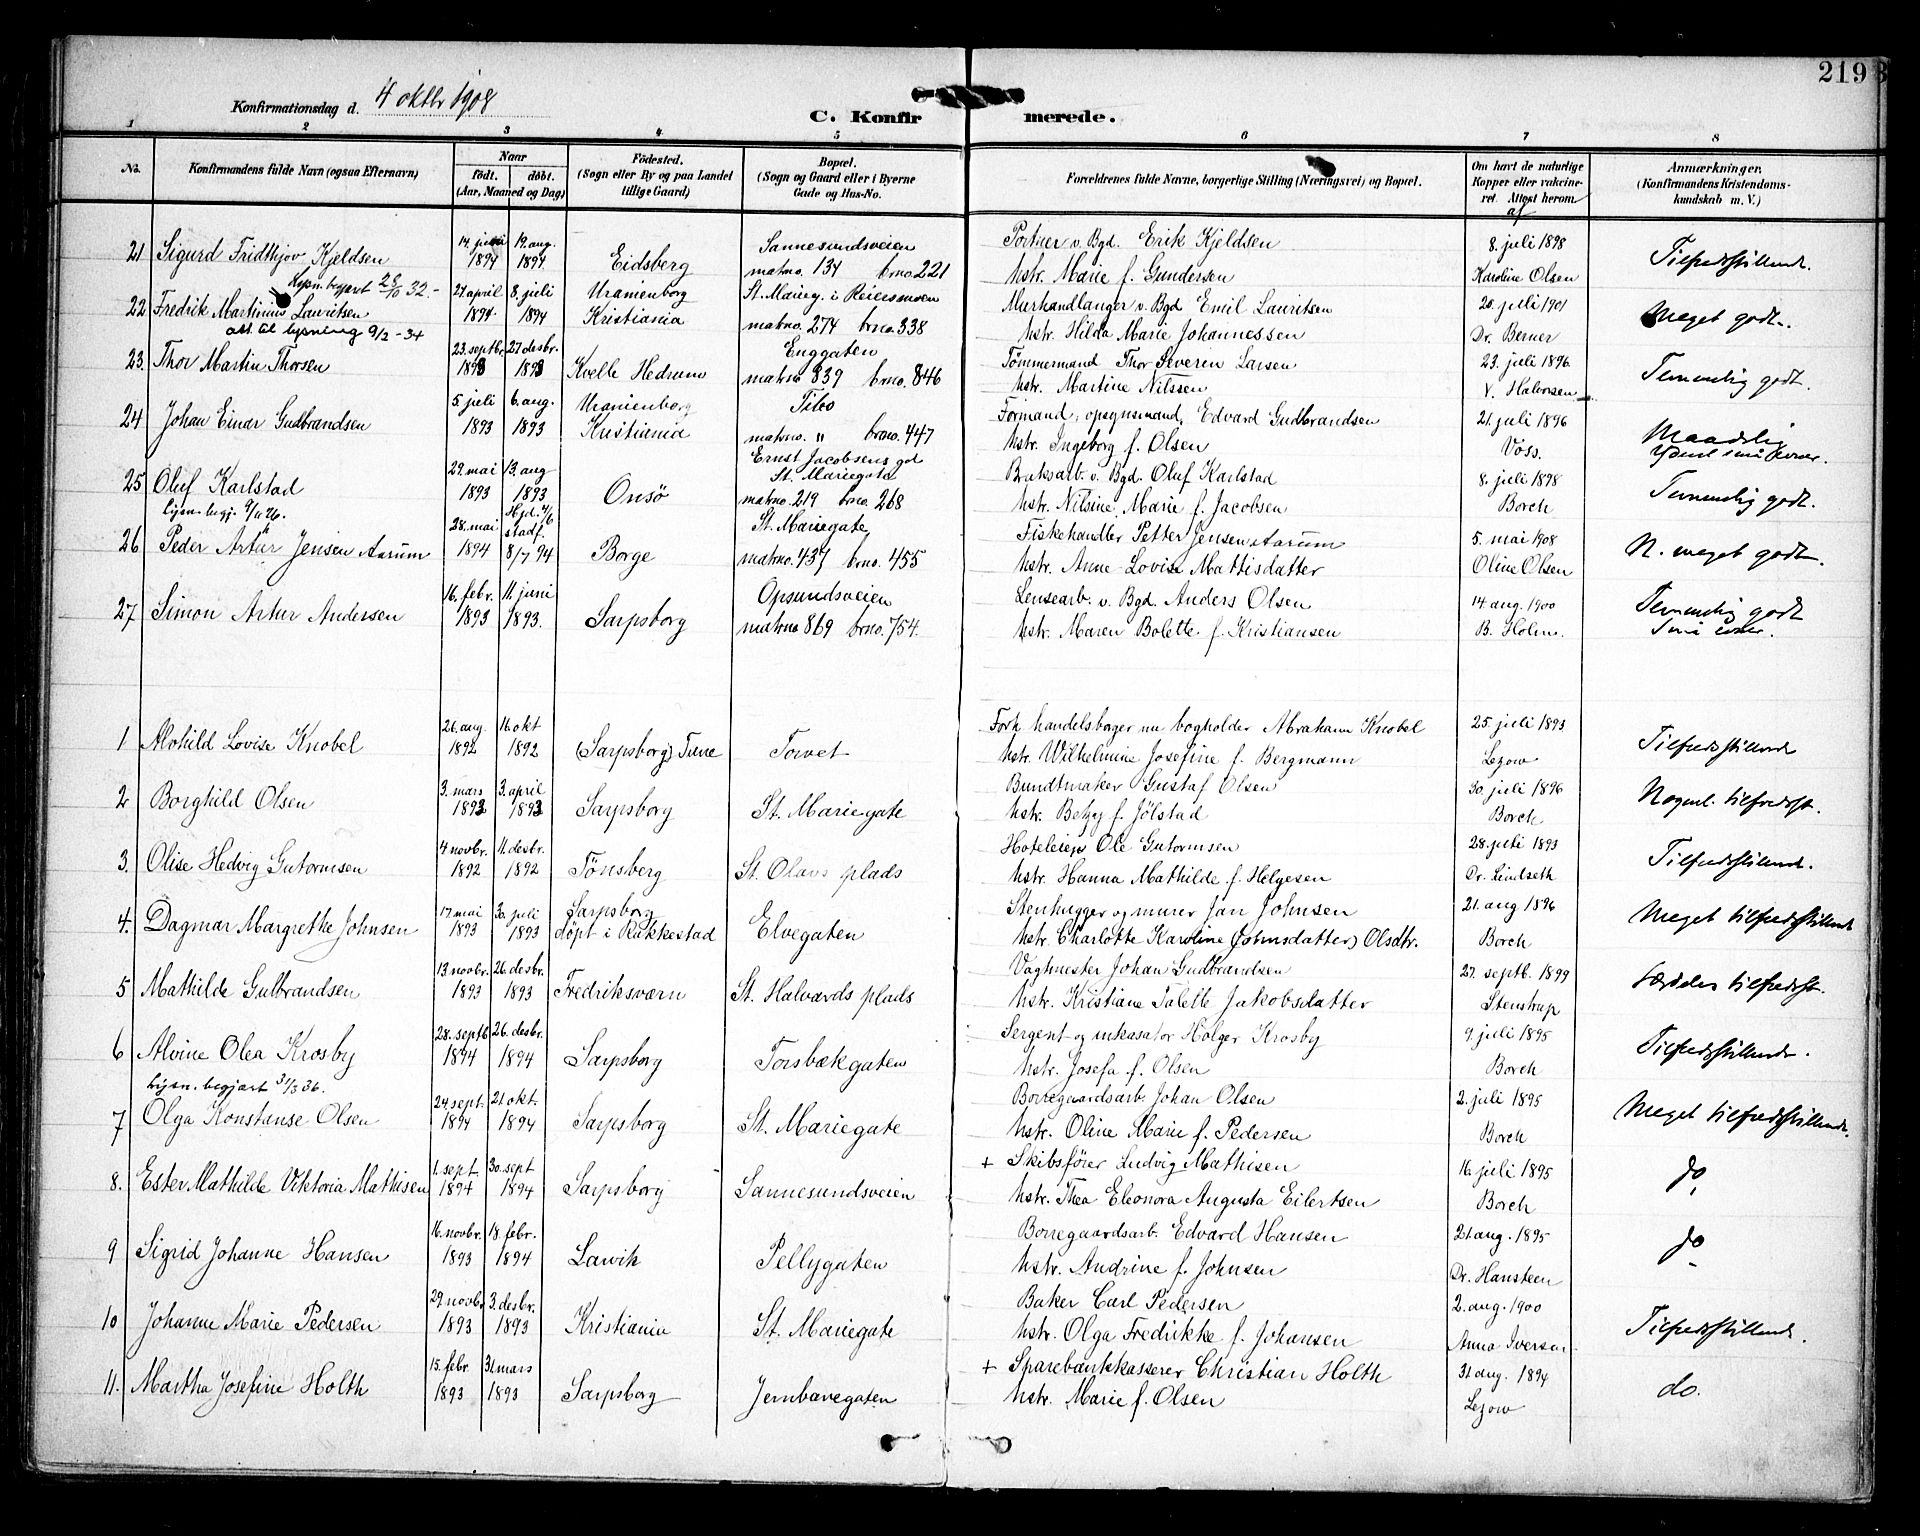 219
Konfirmationsdag d. 4 oktbr 1908
C. Konfirmerede.
1 2 3 4 5 6 7 8
No. Konfirmandens fulde Navn (ogsaa Efternavn) Naar født. døbt. (Aar, Maaned og Dag) Fødested. (Sogn eller By og paa Landet tillige Gaard) Bopæl. (Sogn og Gaard eller i Byerne Gade og Hus-No. Forældrenes fulde Navne, borgerlige Stilling (Næringsvei) og Bopæl. Om havt de naturlige Kopper eller vakcineret. Attest herom af Anmærkninger. (Konfirmandens Kristendomskundskab m. V.)
21 Sigurd Fridthjov Kjeldsen 14. juni 1894 19. aug. 1894 Eidsberg Sannesundsveien matrno. 134 brno. 221 Portner v. Bgd. Erik Kjeldsen Hstr. Marie f. Gundersen 8. juli 1898 Karoline Olsen Tilfredsstillend.
Lysn. begjært 28/10 32.-
22 Fredrik Martinius Lauritsen 27 april 1894 8. juli 1894 Uranienborg Kristiania St. Marieg. matrno. 274 brno. 338 Murhandlanger v. Bgd Emil Lauritsen Hstr. Hilda Marie Johannessen 20. juli 1901 Dr. Berner Meget godt.
att til lysning 9/2-34
23. Thor Martin Thorsen 23. septbr. 1893 27 desbr. 1893 Kvelle Hedrum Enggaten matrno 839 brno. 846 Tømmermand Thor Severen Larsen Hstr. Martine Nilssen 23. juli 1896 V. Halvorsen Temmelig godt.
24 Johan Einar Gudbrandsen 5. juli 1893 6. aug. 1893 Uranienborg Kristiania Tibo matrno. " brno. 447 Formand, opsynsmand, Edvard Gudbrandsen Hstr. Ingeborg f. Olsen 21. juli 1896 Voss. Maadelig små evner.
25 Oluf Karlstad 29. mai 1893 13. aug 1893 Onsø Ernst Jacobsens gd St. Mariegate matrno. 219 brno. 268 Bruksarb. v. Bgd. Oluf Karlstad Hstr. Nilsine Marie f. Jacobsen 8. juli 1898 Borch Temmelig godt.
26 Peder Artur Jensen Aarum 28. mai 1894 Hjd. stadf. 8/7 94 Borge St. Mariegate matrno. 437 brno. 455 Fiskehandler Petter Jensen Aarum Hstr. Anne Lovise Mattisdatter 5. mai 1908 Oline Olsen N. meget godt
27 Simon Artur Andersen 16. febr. 1893 11. juni 1893. Sarpsborg Opsundsveien matrno 869 brno. 754. Lensearb. v. Bgd. Anders Olsen Hstr. Maren Bolette f. Kristiansen 14 aug. 1900 B. Holm. Temmelig godt Små evner.
1 Alvhild Lovise Knobel 26. aug. 1892 16. okt 1892 (Sarpsborg) Tune Torvet Forh. handelsborger nu bogholder Abraham Knobel Hstr. Wilhelmine Josefine f. Bergmann 25. juli 1893 Lezow Tilfredsstillende
2 Borghild Olsen 3. mars 1893 3. april 1893 Sarpsborg St. Mariegate Bundtmaker Gustaf Olsen Hstr. Betzy f. Jølstad 30. juli 1896 Borch Nogenl. tilfredsst.
3. Olise Hedvig Gutormsen 4 novbr. 1892 11. desbr. 1892 Tönsberg St. Olavs plads Hoteleier Ole Gutormsen Hstr. Hanna Mathilde f. Helgesen 28. juli 1893 Dr. Lindseth Tilfredsstillend.
4. Dagmar Margrethe Johnsen 17. mai 1893 30. juli 1893 Sarpsborg döpt i Rakkestad Elvegaten Stenhugger og murer Jan Johnsen Hstr. Charlotte Karoline (Johnsdatter) Olsdtr. 21. aug 1896 Borch Meget tilfredsstillend
5 Mathilde Gulbrandsen 13. novbr. 1893 26. desbr. 1893 Fredriksværn St. Halvards plads Vagtmester Johan Gudbrandsen Hstr. Kristiane Talette Jakobsdatter 27. septb. 1899 Stenstrup Særdeles tilfredsst.
6 Alvine Olea Krosby 28. septb 1894 26. desbr. 1894 Sarpsborg Torsbækgaten Sergent og inkasator Holger Krosby Hstr. Josefa f. Olsen 9. juli 1895 Borch Tilfredsstillende.
Lysn. begjært 31/3 36.
7 Olga Konstanse Olsen 24. sept. 1894 21. okt. 1894 Sarpsborg St. Mariegate Borregaardsarb. Johan Olsen Hstr. Oline Marie f. Pedersen 2. juli 1895 Borch Meget tilfredsstillende.
8. Ester Mathilde Viktoria Mathisen 1. sept. 1894 30. sept 1894 Sarpsborg Sannesundsveien + Skibsfører Ludvig Mathisen Hstr. Thea Eleonora Augusta Eilertsen 16. juli 1895 Borch do.
9 Sigrid Johanne Hansen 16. novbr. 1893 18. febr. 1894 Larvik Pellygaten Borregaardsarb. Edvard Hansen Hstr. Andrine f. Johnsen 21. aug. 1895 Dr. Hansteen do.
10 Johanne Marie Pedersen 29. novbr 1893 3. desbr. 1893 Kristiania St. Mariegate Baker Carl Pedersen Hstr. Olga Fredrikke f. Johansen 2. aug. 1900 Anna Iversen Tilfredsstillend.
11. Martha Josefine Holth 15. febr 1893 31. mars 1893 Sarpsborg Jernbanegaten + Sparebankkasserer Christian Holth Hstr. Marie f. Olsen 31 aug. 1894 Lezow do.